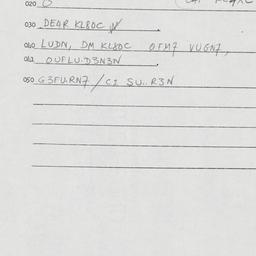 020
030 DEAR KL8OC
040 LUDN, DM KL8OC OFM7 VUGN7,
042 OUFLU.D3N3N
050 G3FU.RN7 / CI SU..R3N